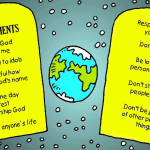 MENTS
God
me
g to idols
ful how
od's name
ne day
rest
rship God
anyone's life
Resp
yo
Don'
Be lo
pe
Don't s
peop
Don't be j
of other p
thing